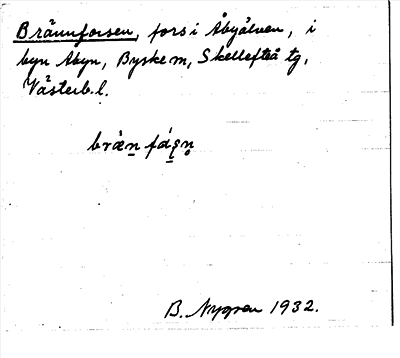 Brännforsen, fors i Åbyälven, i
byn Åbyn, Byske m, Skellefteå tg,
Västerb.l.
bræ̀n fáşn̥
B. Nygren 1932.